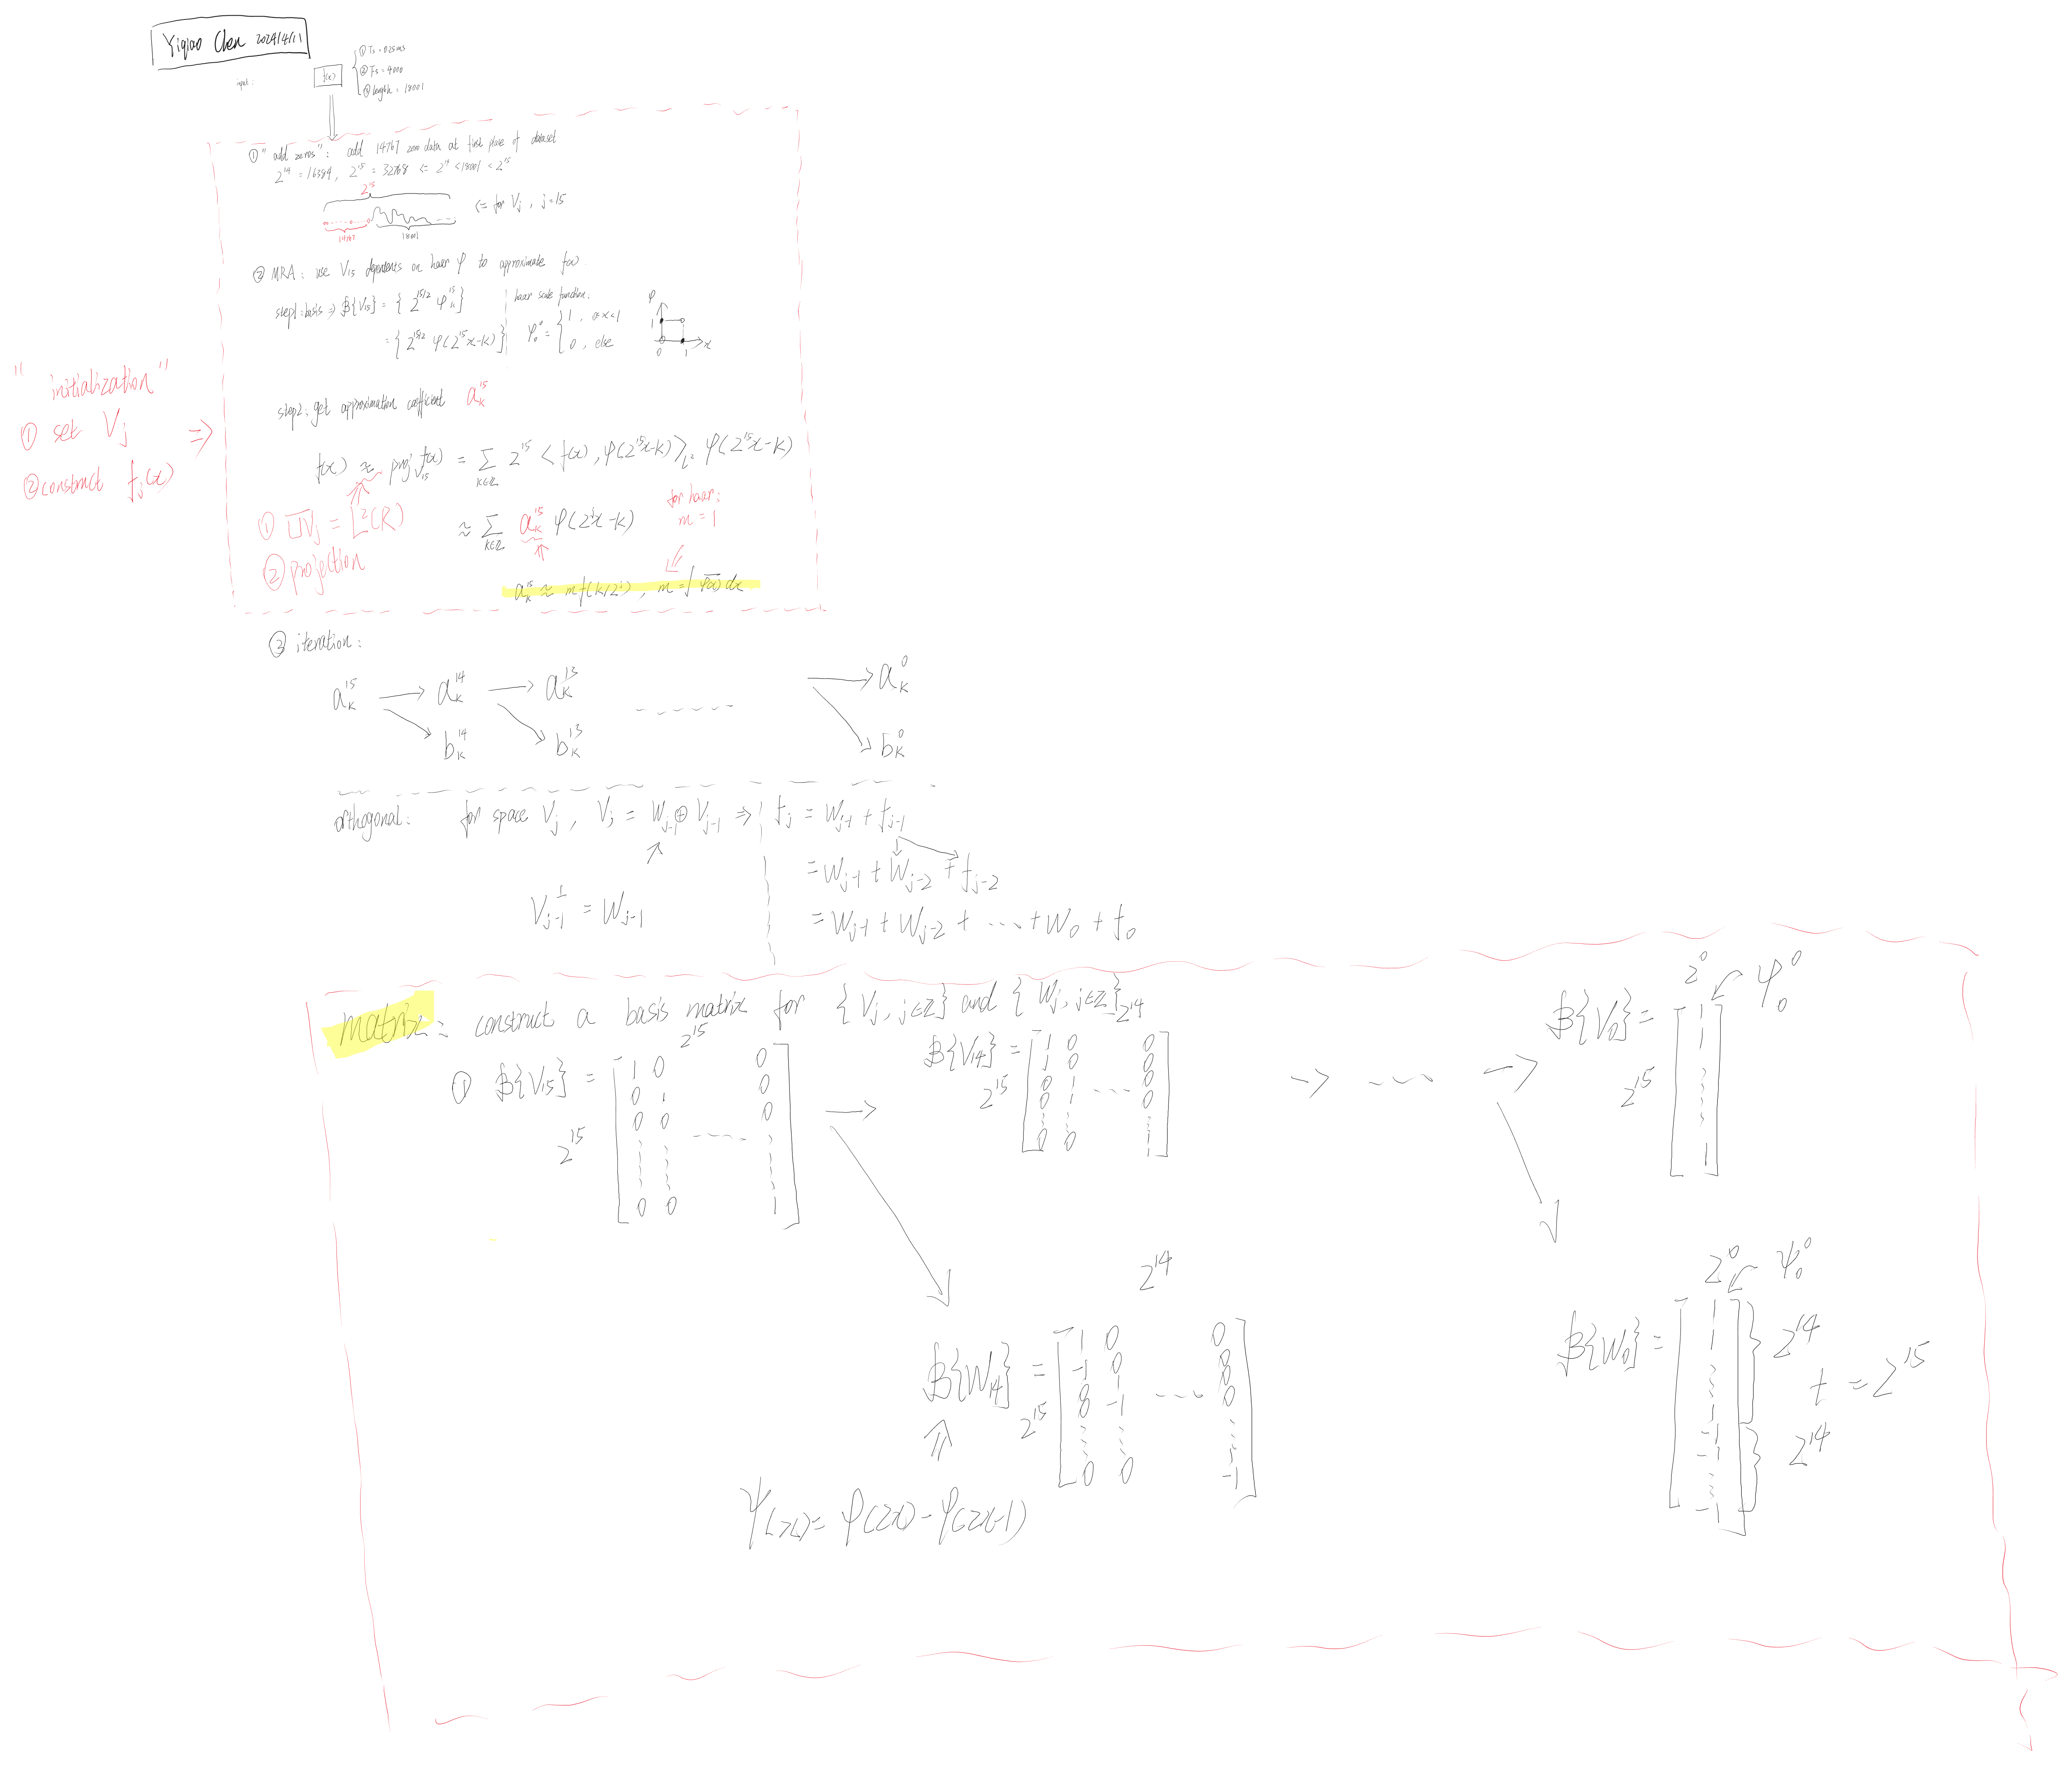 Yiqiao Chen 2024/4/11
input:
f(x)
① Ts = 0.25ms
② Fs = 4000
③ length = 18001
① "add zeros": add 14767 zero data at first place of dataset
2^14 = 16384, 2^15 = 32768 <= 2^14 < 18001 < 2^15
2^15
<= for Vj, j=15
14767
18001
② MRA: use V15 dependents on haar φ to approximate f(x)
step1: basis => B{V15} = { 2^{15/2} φ_k^15 }
= { 2^{15/2} φ(2^15 x-k) }
haar scale function:
φ_0^0 = { 1, 0<x<1
0, else
φ
1
0 1 x
" initialization "
① set Vj
② construct fj(x)
=>
step2: get approximation coefficient a_k^15
f(x) ≈ proj_{V15} f(x) = Σ_{k∈Z} 2^15 <f(x), φ(2^15 x-k)>_{L²} φ(2^15 x-k)
① \overline{∪Vj} = L²(R)
② projection
≈ Σ_{k∈Z} a_k^15 φ(2^j x-k)
for haar:
m = 1
a_k^15 ≈ m f(k/2^j), m = ∫ \overline{φ(x)} dx
③ iteration:
a_k^15 → a_k^14 → a_k^13 ------ → a_k^0
b_k^14 b_k^13 b_k^0
orthogonal: for space Vj, Vj = W_{j-1} ⊕ V_{j-1} => fj = W_{j-1} + f_{j-1}
= W_{j-1} + W_{j-2} + f_{j-2}
V_{j-1}^⊥ = W_{j-1}
= W_{j-1} + W_{j-2} + ... + W_0 + f_0
matrix: construct a basis matrix for {Vj, j∈Z} and {Wj, j∈Z}
① B{V15} =
2^15
2^15
1 0 0
0 1 0
0 0 0
0 0 1
B{V14} =
2^14
2^15
1 0 0
1 0 0
0 1 0
0 1 0
0 0 1
→ ---- →
B{V0} =
2^0 φ_0^0
2^15
1
1
1
B{W14} =
2^14
2^15
1 0 0
-1 0 0
0 1 0
0 -1 0
1
0 0 -1
ψ(x) = φ(2x) - φ(2x-1)
B{W0} =
2^0 ψ_0^0
1
1
1
-1
-1
-1
2^14
+ = 2^15
2^14